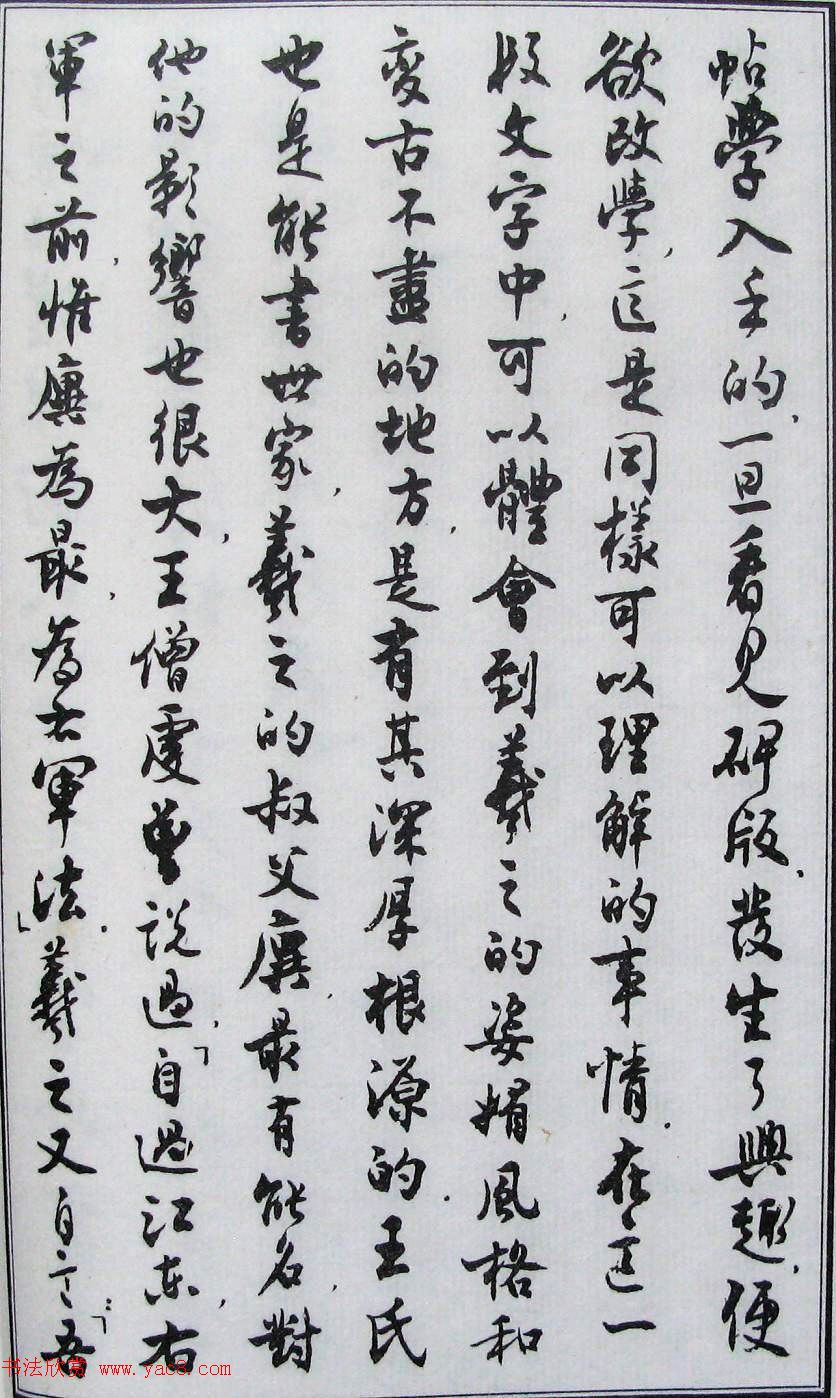 帖學入手的，一旦看見碑版，發生了興趣，便
欲改學，這是同樣可以理解的事情。在這一
段文字中，可以體會到羲之的姿媚風格和
變古不盡的地方，是有其深厚根源的。王氏
也是能書世家，羲之的叔父廙，最有能名，對
他的影響也很大，王僧虔曾說過，「自過江東，右
軍之前，惟廙為最，為右軍法」。羲之又自言：「吾
书法欣赏 www.yac8.com